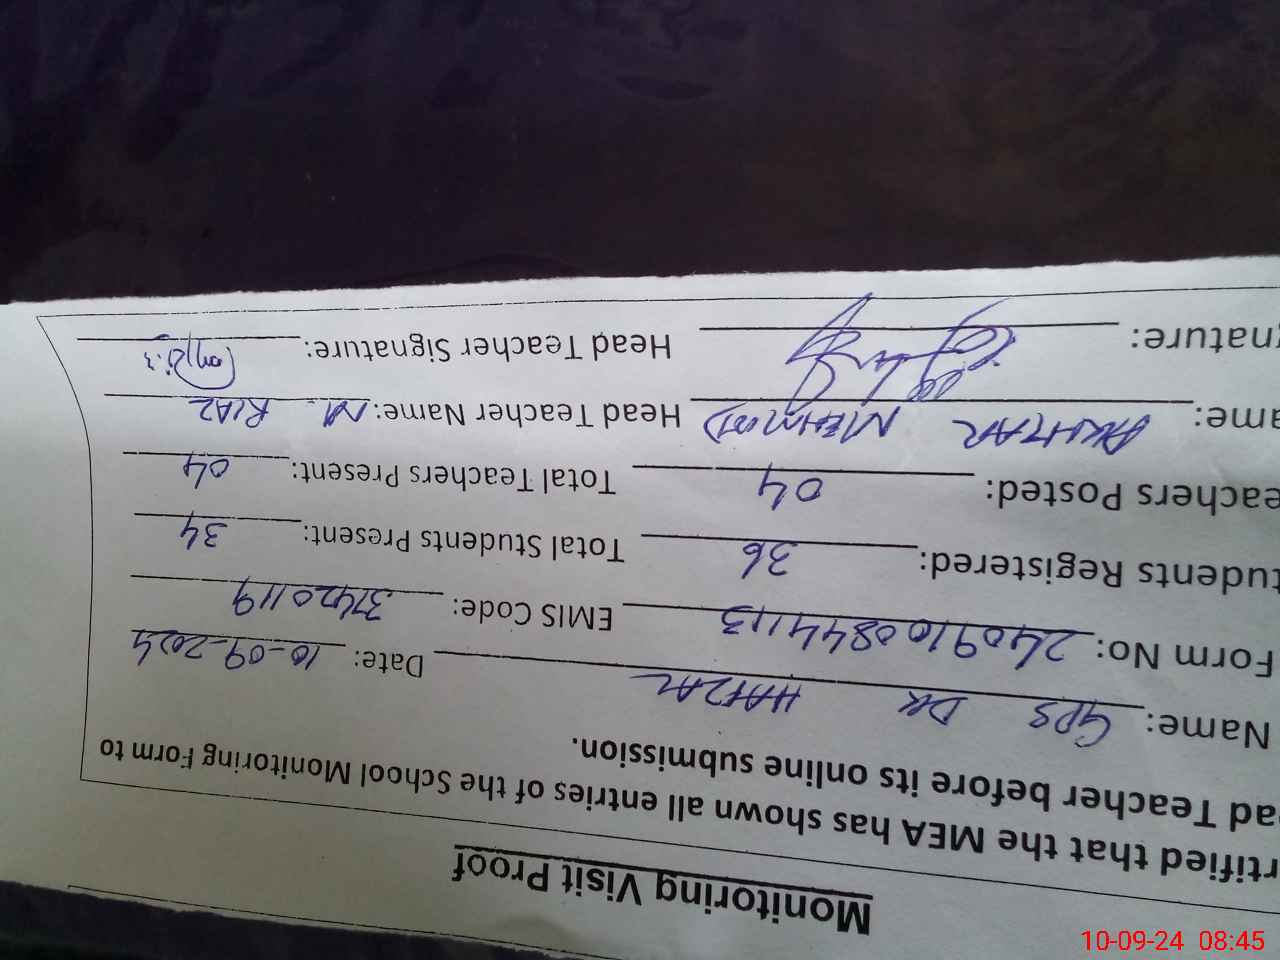 Monitoring Visit Proof
rtified that the MEA has shown all entries of the School Monitoring Form to
ad Teacher before its online submission.
Name: GPS DK Date: 10-09-2024
Form No: EMIS Code: 37420119
tudents Registered: 36 Total Students Present: 34
eachers Posted: 04 Total Teachers Present: 04
ame: AKHTAR MEHMOOD Head Teacher Name: M. RIAZ
nature: Head Teacher Signature:
10-09-24 08:45